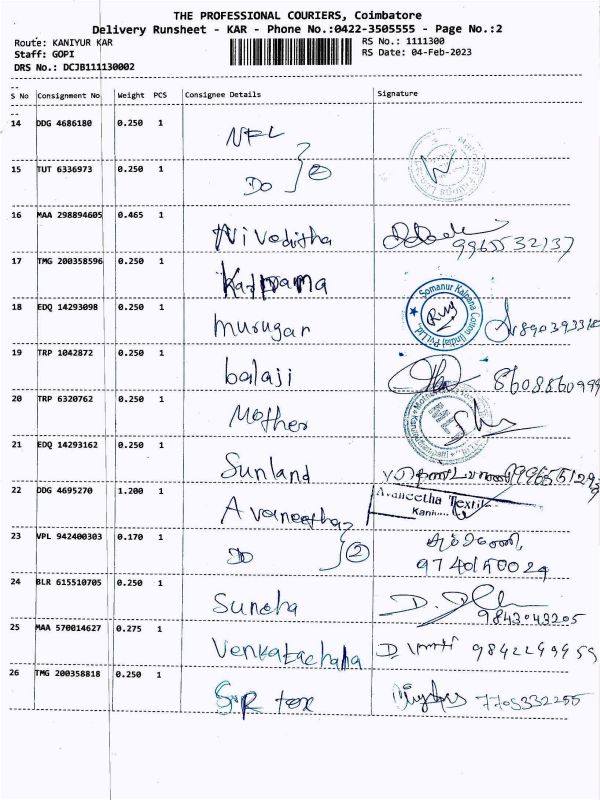 THE PROFESSIONAL COURIERS, Coimbatore
Delivery Runsheet - KAR - Phone No.:0422-3505555 - Page No.:2
Route: KANIYUR KAR
RS No.: 1111300
Staff: GOPI
RS Date: 04-Feb-2023
DRS No.: DCJB111130002
S No Consignment No Weight PCS Consignee Details Signature
14 DDG 4686180 0.250 1 NFL
15 TUT 6336973 0.250 1 Do 2
16 MAA 298894605 0.465 1 Niveditha 9965532137
17 TMG 200358596 0.250 1 Kalpana Somanur Kalpana Cotton (India) Pvt Ltd.
18 EDQ 14293098 0.250 1 murugan
19 TRP 1042872 0.250 1 balaji 8608860999
20 TRP 6320762 0.250 1 Mother
21 EDQ 14293162 0.250 1 Sunland
22 DDG 4695270 1.200 1 Avaneetha Avaneetha Textil
23 VPL 942400303 0.170 1 Do 2
24 BLR 615510705 0.250 1 9843043205
25 MAA 570014627 0.275 1 Venkatachala
26 TMG 200358818 0.250 1 SR tex 7705332255